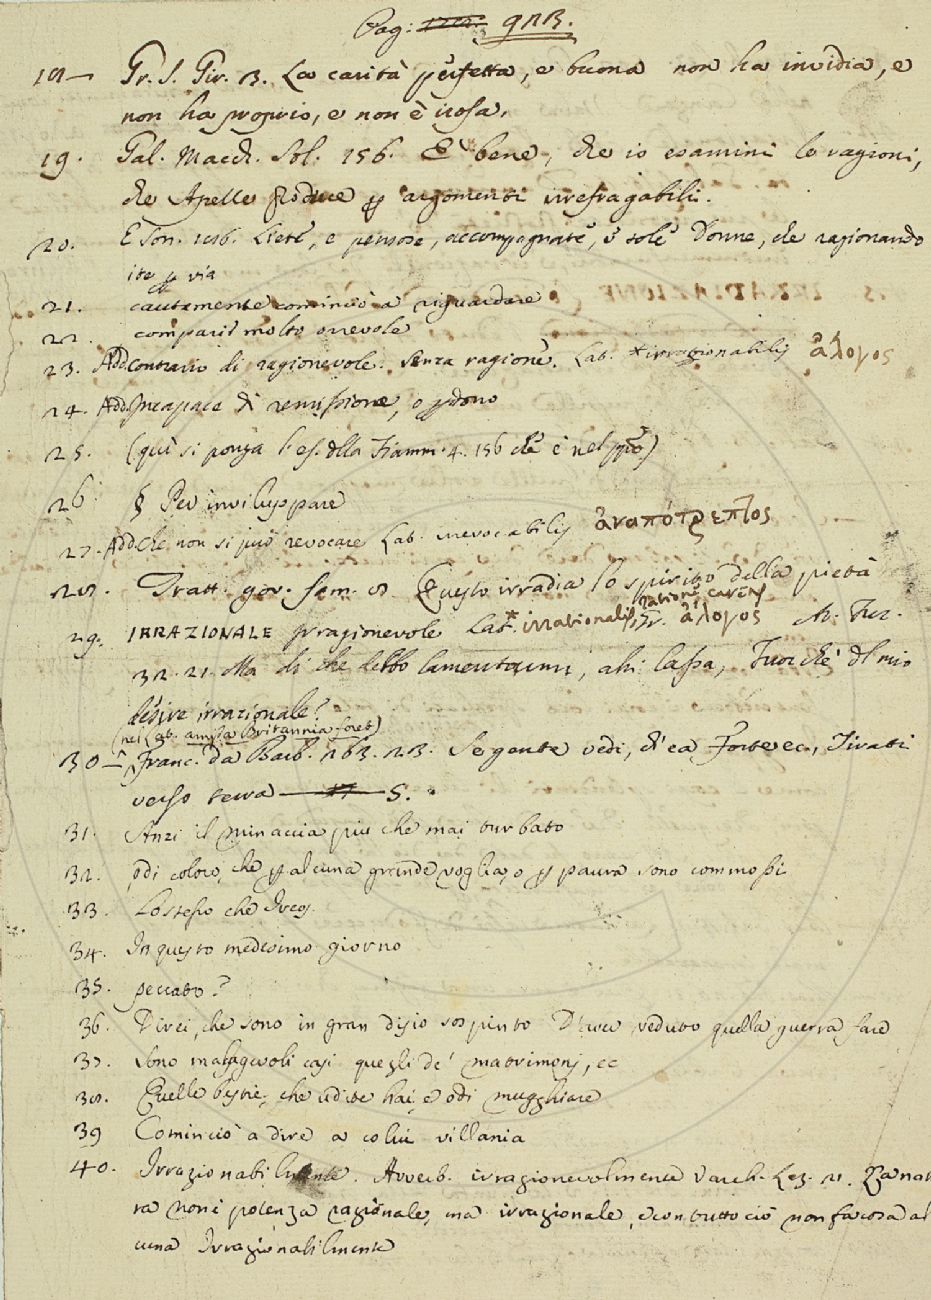 Pag: 988.
18 — Gr. S. Gir. 3. La carità perfetta, e buona non ha invidia, e
non ha proprio, e non è irosa.
19. Gal. Macch. Sol. 156. È bene, che io esamini le ragioni,
che Apelle produce p argomenti irrefragabili.
20. E Son. 186. Liete, e pensose, accompagnate, e sole Donne, che ragionando
ite p via
21. cautamente cominciò a riguardare
22. comparit molto orrevole
23. Add. Contrario di ragionevole. Senza ragione. Lat. *irrationabilis ἄλογος
24. Add. Incapace di remissione, o pdono
25. (quì si ponga l'es. dlla Fiamm. 4. 156 che è nel ppio)
26. § Per inviluppare
27. Add. che non si può revocare Lat. irrevocabilis ἀναπότρεπτος
28. Tratt. gov. fam. 8. Questo irradia lo spirito della pietà
29. IRRAZIONALE Irragionevole Lat. *irrationalis, ratione carens Gr. ἄλογος Ar. Fur.
32. 21. Ma di che debbo lamentarmi, ahi lassa, Fuor che dl mio
desire irrazionale?
(nel Lat. amissa Britannia foret)
30 — Franc. da Barb. 263. 23. Se gente vedi, di ca forte ec., Tirati
verso terra S.
31. Anzi il minaccia più che mai turbato
32. odi coloro, che p alcuna grande voglia, o p paura sono commossi
33. Lo stesso che Ircos.
34. In questo medesimo giorno
35. peccato?
36. Direi, che sono in gran disio sospinto D'aver veduto quella guerra fare
37. sono malagevoli così quegli de' matrimonj, ec
38. Quelle bestie, che udite hai, e odi mugghiare
39 Cominciò a dire a colui villania
40. Irrazionabilmente. Avverb. irragionevolmente Varch. Lez. 21. La natu
ra non è potenza razionale, ma irrazionale, e contuttociò non fa cosa al
cuna Irrazionabilmente